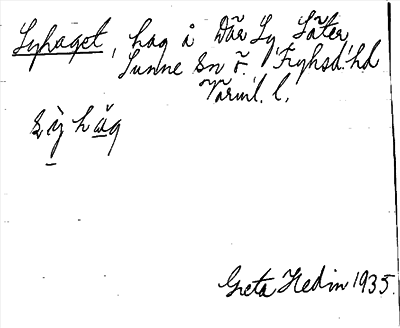 Lyhaget, hag å Där Ly Säter
Sunne sn Ö. Fryksd. hd
Värml. l.
hag
Greta Hedin 1935.